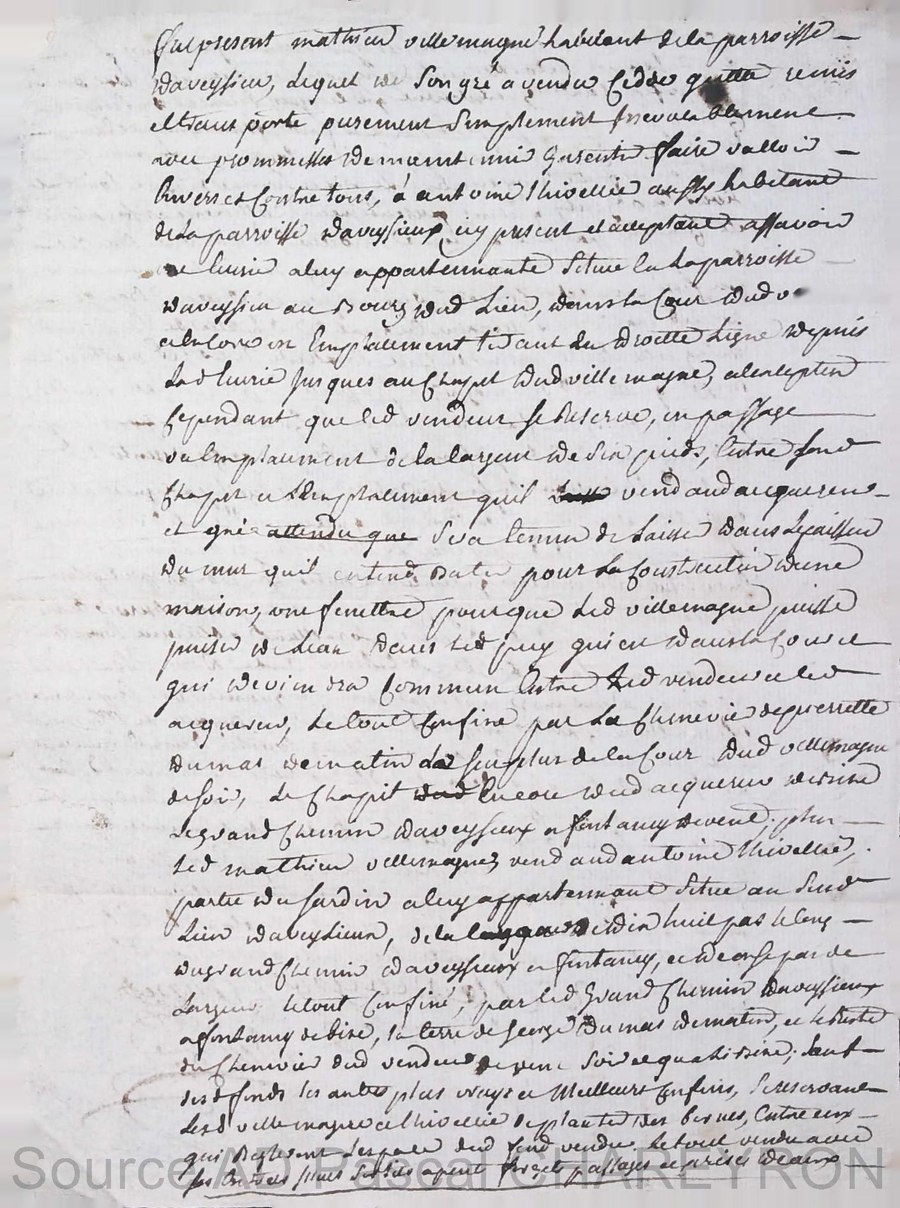 fut présent mathieu villemagne habitant de la parroisse
daveysieu, lequel de son gré a vendu cedde quitte remis
et transporte purement simplement irrevocablement
avec promesses de maintenir garentir faire valloir
envers et contre tous, à antoine thivellié aussy habitant
de la parroisse daveysieux icy present et acceptant assavoir
lurie a luy appartennante situe en la parroisse
daveysieu au bourg dud lieu, dans la cour dud v
encore un emplacement tirant en droitte ligne depuis
lad lurie jusques au chapit dud villemagne, a lexception
cependant que led vendeur se reserve, un passage
ou emplacement de la largeur de six pieds, entre sond
chapit et lemplacement quil vend aud acquereur
et attendu que sera tenu de laisser dans lepaisseur
du mur quil entend batir pour la construction dune
maison, une fenettre pour que led villemagne puisse
puiser de leau dans led puy qui est dans la cour et
qui deviendra commun entre led vendeur et led
acquereur, le tout confiné par la chenevier de pierrette
dumas de matin le surplus de la cour dud villemagne
de soir, le chapit encore dud acquereur de bize
le grand chemin daveysieux a fontany de vent, plus
led mathieu villemagne, vend aud antoine thivellié,
partie du jardin a luy appartennant situe au susd
lieu daveysieux, de la de dix huit pas le long
du grand chemin daveyssieux a fontany, et de onse pas de
largeur le tout confiné, par led grand chemin daveyssieux
a fontany de bize, la terre de george dumas de matin, et le reste
du chenevier dud vendeur de vent soir et quatisine, sauf
desd fonds les autres plus vrays et meilleurs confins, se reservant
lesd villemagne et thivellié de planter des bornes, entre eux
qui reglent lespace dud fond vendu le tout vendu avec
ses entrées issues passages et prises deaux
Source AD Pascal CHAREYRON